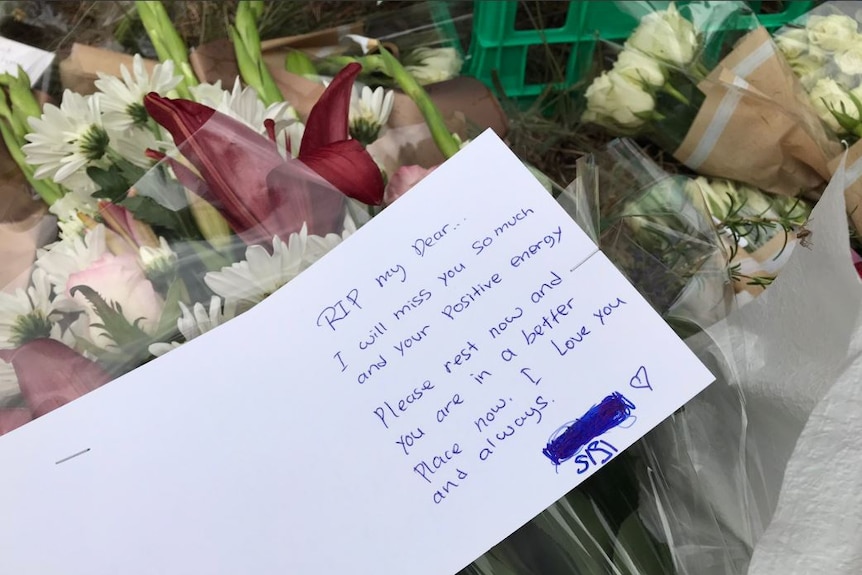 RIP my Dear...
I will miss you so much
and your Positive energy
Please rest now and
you are in a better
Place now. I Love you
and always. ♡